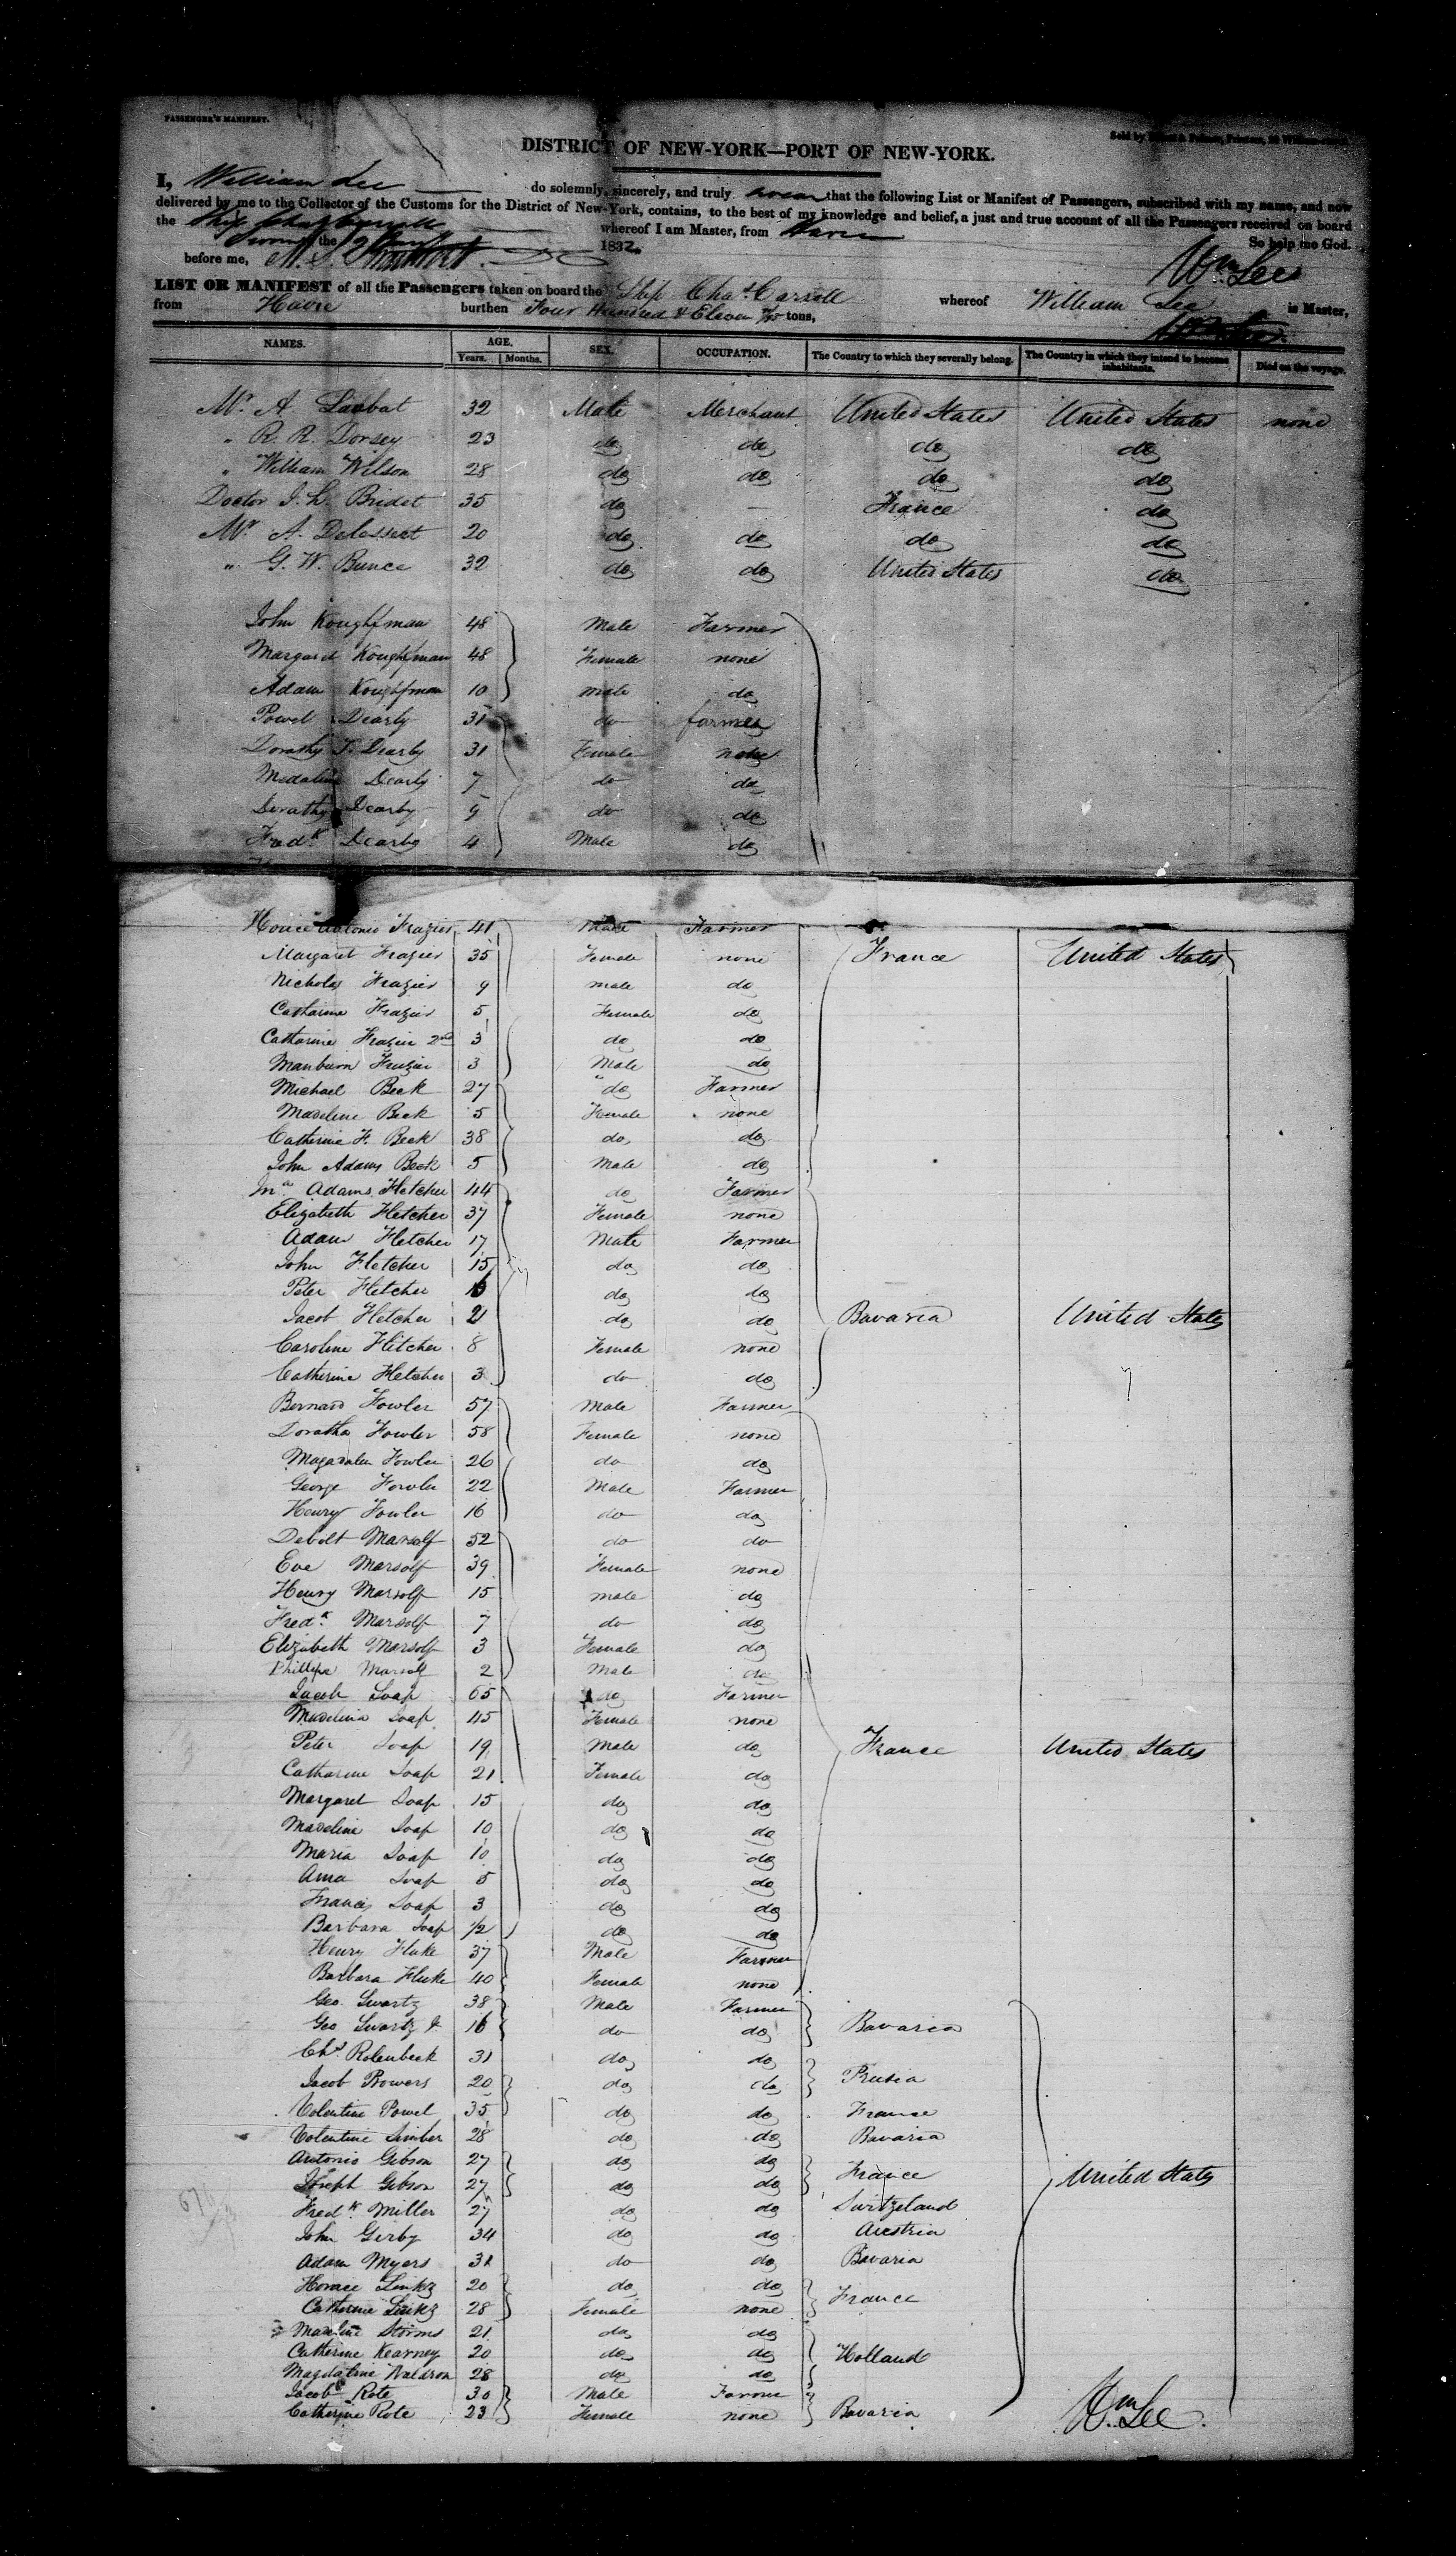 PASSENGER'S MANIFEST.
Sold by Printers, William
DISTRICT OF NEW-YORK—PORT OF NEW-YORK.
I, William Lee do solemnly, sincerely, and truly swear that the following List or Manifest of Passengers, subscribed with my name, and now
delivered by me to the Collector of the Customs for the District of New-York, contains, to the best of my knowledge and belief, a just and true account of all the Passengers received on board
the Ship Chas Carroll whereof I am Master, from Havre
the 1832. So help me God.
before me, Wm Lee
LIST OR MANIFEST of all the Passengers taken on board the Ship Chas. Carroll whereof William Lee is Master,
from Havre burthen Four Hundred & Eleven tons,
NAMES. AGE. SEX. OCCUPATION. The Country to which they severally belong. The Country in which they intend to become inhabitants. Died on the voyage.
Years. Months.
Mr A. 32 Male Merchant United States United States none
" R. R. Dorsey 23 do do do do
" William Wilson 28 do do do do
Doctor J. L. Bridet 35 do — France do
Mr A. Delessert 20 do do do do
" G. W. Bunce 32 do do United States do
John Koughfman 48 Male Farmer
Margaret Koughfman 48 Female none
Adam Koughfman 10 male do
Powel Dearby 31 do farmer
Dorathy T. Dearby 31 Female none
Madaline Dearby 7 do do
Dorathy Dearby 9 do do
Fredk Dearby 4 Male do
Antonio Frazier 41 Male Farmer
Margaret Frazier 35 Female none France United States
Nicholas Frazier 9 male do
Catharine Frazier 5 Female do
Catharine Frazier 2nd 3 do do
Manburn Frazier 3 Male do
Michael Beck 27 do Farmer
Madeline Beck 5 Female none
Catherine F. Beck 38 do do
John Adams Beck 5 Male do
Jno Adams Fletcher 44 do Farmer
Elizabeth Fletcher 37 Female none
Adam Fletcher 17 Male Farmer
John Fletcher 15 do do
Peter Fletcher do do
Jacob Fletcher 21 do do Bavaria United States
Caroline Fletcher 8 Female none
Catherine Fletcher 3 do do
Bernard Fowler 57 Male Farmer
Doratha Fowler 58 Female none
Magadalen Fowler 26 do do
George Fowler 22 Male Farmer
Henry Fowler 16 do do
Debolt Marsolf 52 do do
Eve Marsolf 39 Female none
Henry Marsolf 15 male do
Fredk Marsolf 7 do do
Elizabeth Marsolf 3 Female do
Phillipe Marsolf 2 Male do
Jacob Soap 65 do Farmer
Madelina Soap 45 Female none
Peter Soap 19 Male do France United States
Catharine Soap 21 Female do
Margaret Soap 15 do do
Madeline Soap 10 do do
Maria Soap 10 do do
Anna Soap 5 do do
Francis Soap 3 do do
Barbara Soap 1/2 do do
Henry Fluke 37 Male Farmer
Barbara Fluke 40 Female none
Geo. Swartz 38 Male Farmer
Geo Swartz Jr 16 do do Bavaria
Chs. Rolenbeck 31 do do
Jacob Bowers 20 do do Prusia
Volentine Powel 35 do do France
Volentine Simber 28 do do Bavaria
Antonio Gibson 27 do do
Joseph Gibson 27 do do France United States
Fredk. Miller 27 do do Switzeland
John Gerby 34 do do Austria
Adam Myers 31 do do Bavaria
Horace Linkz 20 do do
Catherine Linkz 28 Female none France
Madline Storms 21 do do
Catherine Kearney 20 do do Holland
Magdaline Waldron 28 do do
Jacob Rote 30 Male Farmer
Catherine Rote 23 Female none Bavaria
Wm Lee